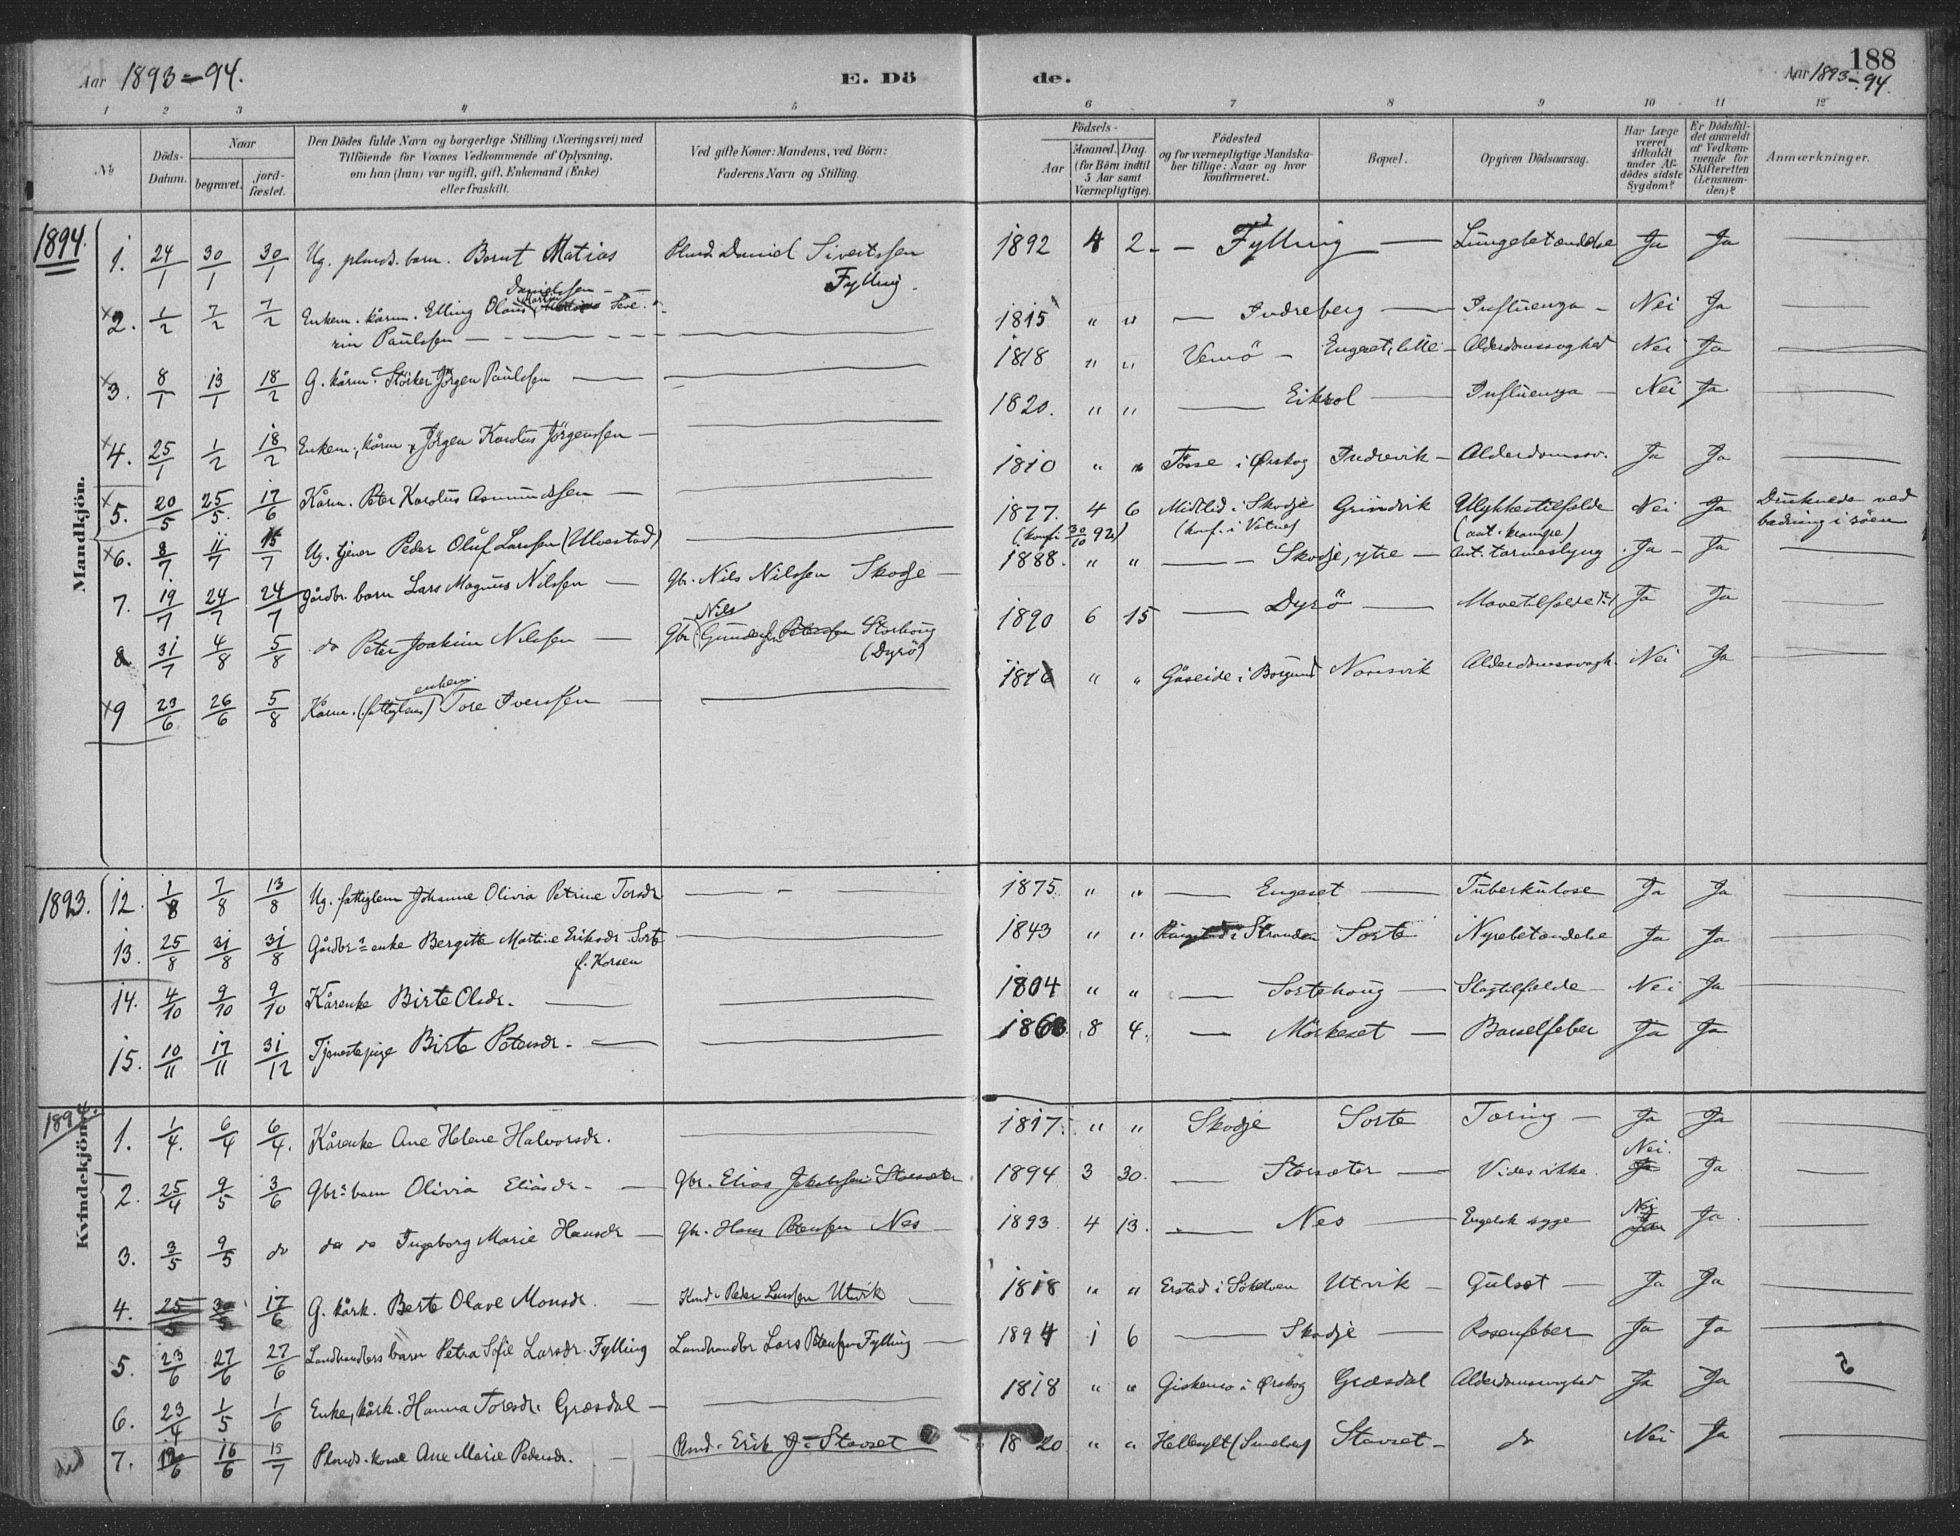 Aar 1893-94.
E. Dö
de.
188
Aar 1893-94.
1 2 3 4 5 6 7 8 9 10 11 12
No
Döds-Datum.
Naar
begravet.
jord-fæstet.
Den Dödes fulde Navn og borgerlige Stilling (Næringsvei) med
Tilföiende for Voxnes Vedkommende af Oplysning,
om han (hun) var ugift, gift, Enkemand (Enke)
eller fraskilt.
Ved gifte Koner: Mandens, ved Börn:
Faderens Navn og Stilling.
Födsels-
Aar
Maaned. Dag.
(for Börn indtil
5 Aar samt
Værnepligtige).
Födested
og for værnepligtige Mandska-
ber tillige: Naar og hvor
konfirmeret.
Bopæl.
Opgiven Dödsaarsag.
Har Læge
været
tilkaldt
under Af-
dödes sidste
Sygdom?
Er Dödsfal-
det anmeldt
af Vedkom-
mende for
Skifteretten
(Lensman-
den)?
Anmærkninger.
Mandkjön.
1894.
1. 24/1 30/1 30/1 Ug. plmds. barn. Bernt Matias Danielssen Plmd. Daniel Sivertssen Fylling. 1892 4 2 Fylling Lungebetændelse Ja Ja
x2. 1/2 7/2 7/2 Enkem. kårm. Elling Olaus Martin Seve-
rin Paulssen 1815 " " Indreberg Influenza Nei Ja
x3. 8/1 13/1 18/2 G. kårm. Störker Jörgen Paulssen 1818 " " Vemö Engeset, lille Alderdomssvaghed Nei Ja
x4. 25/1 1/2 18/2 Enkem., kårm. Jörgen Karolus Jörgenssen 1820. " " Eikrol Influenza Nei Ja
x5. 20/5 25/5. 17/6 Kårm. Peter Karolus Asmundssen 1810 " " Fosse i Ørskog Indrevik Alderdomssv. Ja Ja
x6. 8/7 11/7 15/7 Ug. tjener Peder Oluf Larssen (Ulvestad) 1877. 4 6 Midtlid i Skodje Grindvik Ulykkestilfælde Nei Ja Druknede ved
(konf. 30/10 92) (konf. i Vatne) (ant. krampe) badning i söen
7. 19/7 24/7 24/7 Gårdbr. barn Lars Magnus Nilssen Gbr. Nils Nilssen Skodje 1888. " " Skodje, ytre Ant. tarmeslyng Ja Ja
8 31/7 4/8 5/8 do Peter Joakim Nilssen Gbr. Nils Storhoug
(Dyrö) 1890 6 15 Dyrö Mavetilfælde Ja Ja
x9 23/6 26/6 5/8 Kårm. (fattiglem) enkem. Tore Iverssen 1816 " " Gåseide i Borgund Nørsvik Alderdomssvagh. Nei Ja
1893.
12. 1/8 7/8 13/8 Ug. fattiglem Johanne Olivia Petrine Torsdr 1875. " " Engeset Tuberkulose Ja Ja
13. 25/8 31/8 31/8 Gårdbr. enke Bergitte Martine Eriksdr Sorte
f. Korsen 1843 " " Stranden Sorte Nyrebetændelse Ja Ja
14. 4/10 9/10 9/10 Kårenke Birte Olsdr. 1804 " " Sortehoug Slagtilfælde Nei Ja
15. 10/11 17/11 31/12 Tjenestepige Birte Petersdr. 1868 8 4. Mörkeset Barselfeber Ja Ja
Kvindekjön.
1894.
1. 1/4. 6/4 6/4. Kårenke Ane Helene Halvorsdr. 1817. " " Skodje Sorte Tæring Ja Ja
2. 25/4 9/5 3/6 Gbr. barn Olivia Eliasdr. Gbr. Elias Jakobssen Storsæter 1894 3 30. Storsæter Vides ikke. Nei. Ja
3. 3/5 9/5 do do do Ingeborg Marie Hansdr Gbr. Hans Petersen Nes 1893. 4 13. Nes Engelsk syge Nei Ja
4. 25/5 30/5 17/6 G. kårk. Berte Olave Monsdr. Kmd. Peder Larssen Utvik 1818 " " Erstad i Sökelven Utvik Gulsot Ja Ja
5. 23/6 27/6 27/6 Landhandlers barn Petra Sofie Larsdr. Fylling Landhandler Lars Peterssen Fylling 1894 1 6 Skodje Rosenfeber Ja Ja
6. 23/4 1/5 1/6 Enke, kårk. Hanna Toresdr. Græsdal 1818 " " Giskemo i Ørskog Græsdal Alderdomssvaghed Ja Ja
7. 12/6 16/6 15/7 Plmds. kone Ane Marie Pedersdr. Plmd. Erik J. Stavset 1820 " " Hellesylt (Sunelven) Stavset do Nei Ja